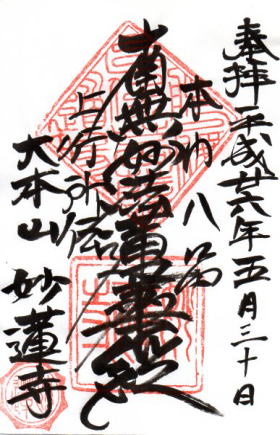 奉拝 平成廿六年五月三十日
本門八品
南無妙法蓮華経
上行所傳
大本山 妙蓮寺